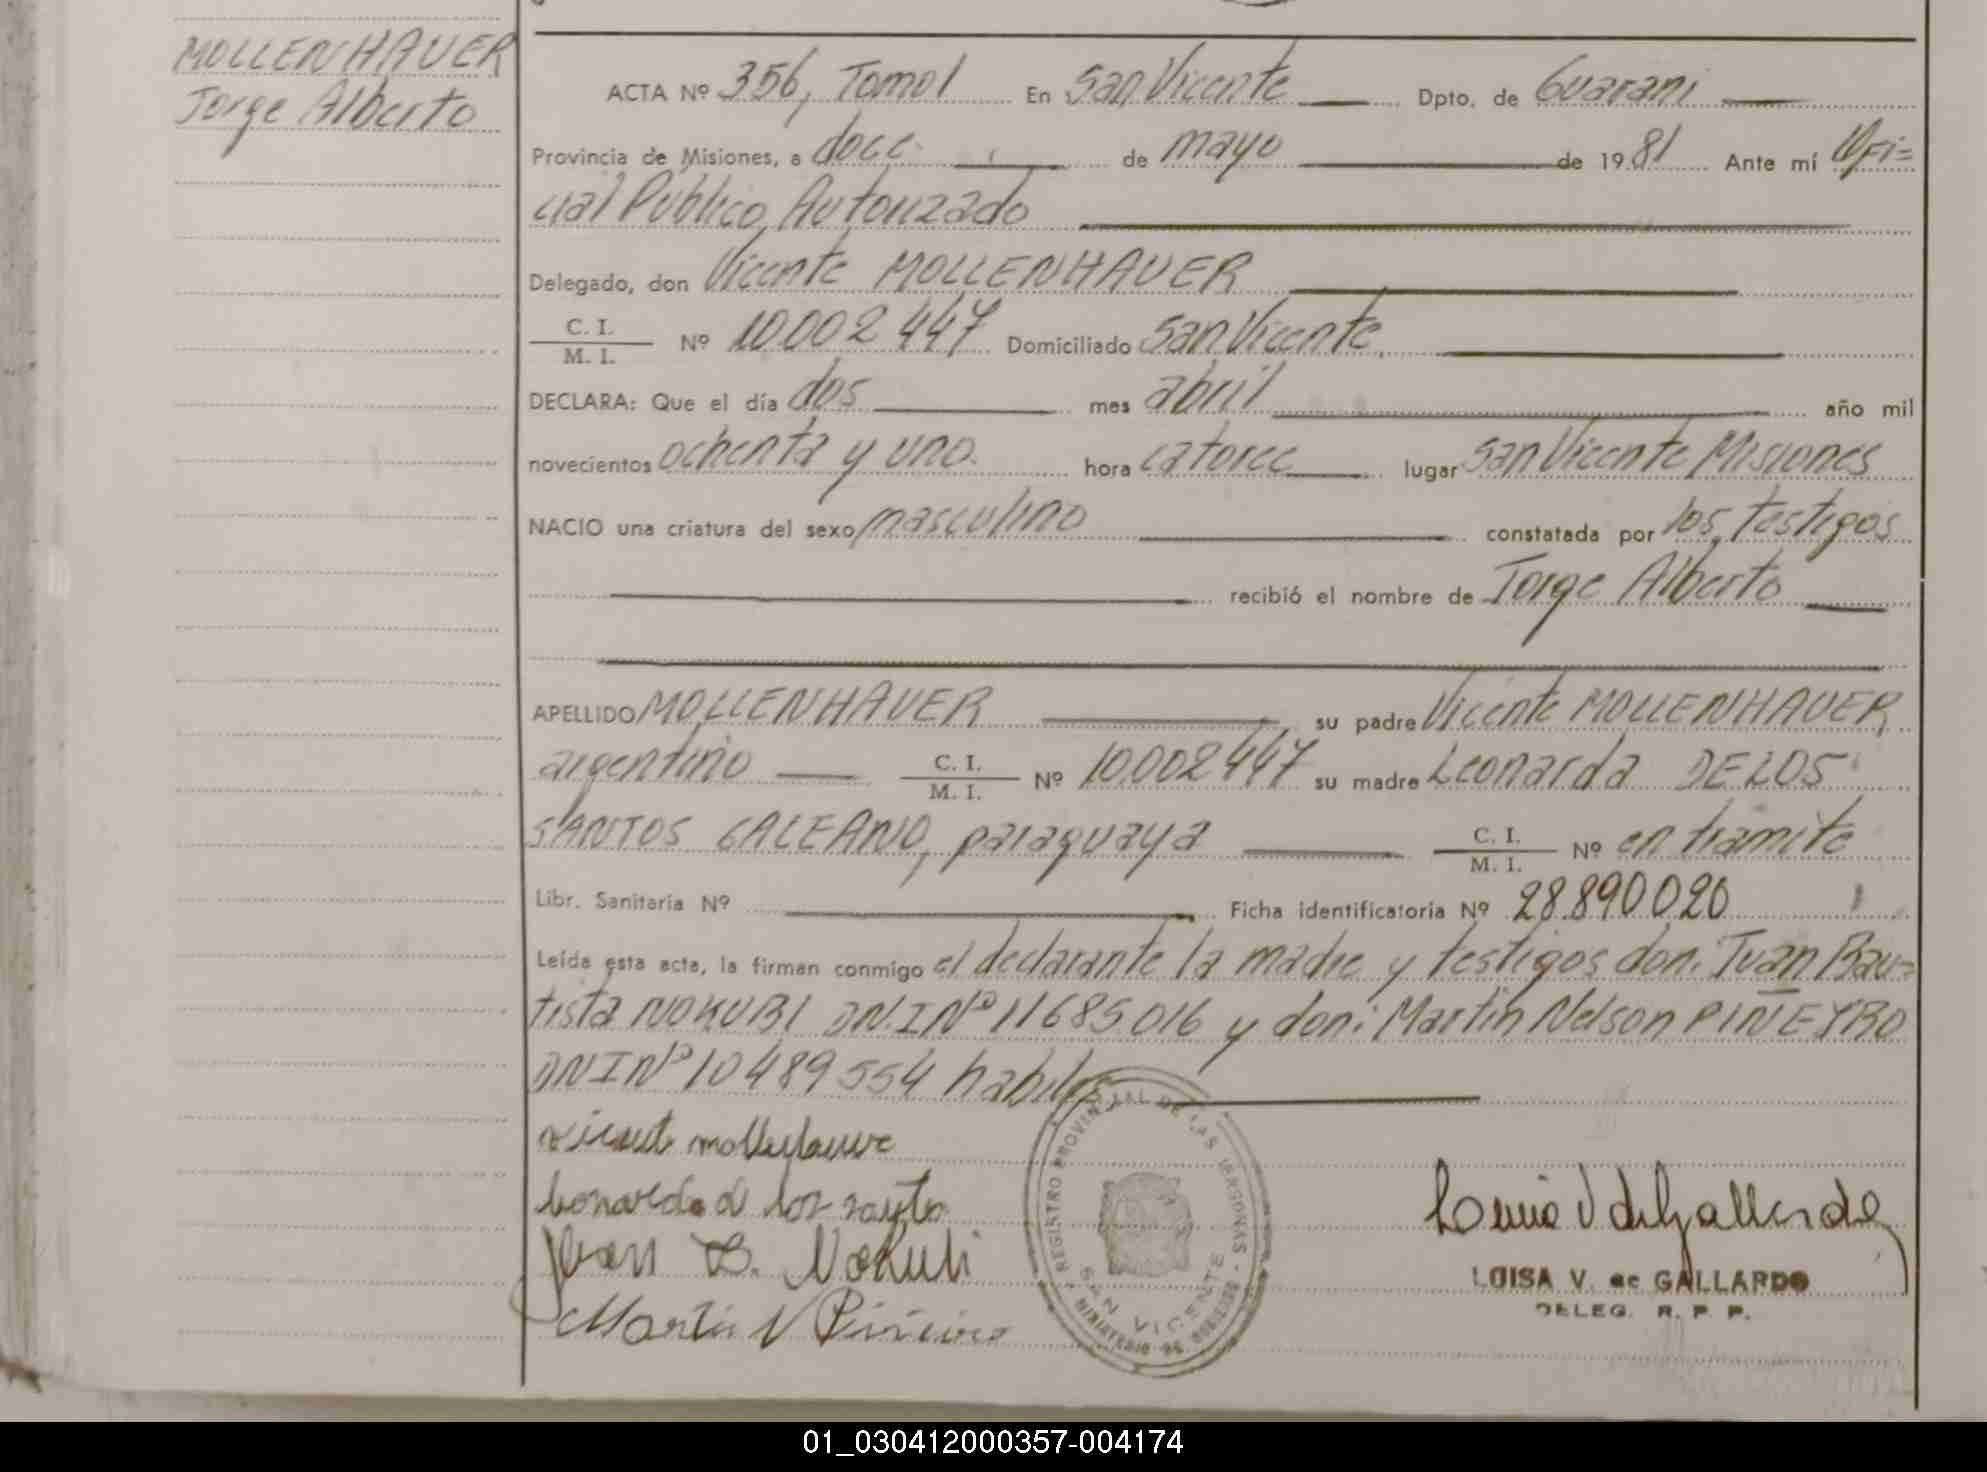 MOLLENHAUER
Jorge Alberto
ACTA Nº 356, Tomo I En San Vicente Dpto. de Guarani
Provincia de Misiones, a doce de mayo de 1981 Ante mí Ofi=
cial Público Autorizado
Delegado, don Vicente MOLLENHAUER
C. I.
M. I. Nº 10.002 447 Domiciliado San Vicente
DECLARA: Que el día dos mes abril año mil
novecientos ochenta y uno. hora catorce lugar San Vicente Misiones
NACIO una criatura del sexo masculino constatada por los testigos
recibió el nombre de Jorge Alberto
APELLIDO MOLLENHAUER su padre Vicente MOLLENHAUER
argentino C. I. M. I. Nº 10.002 447 su madre Leonarda DE LOS
SANTOS GALEANO, paraguaya C. I. M. I. Nº en tramite
Libr. Sanitaria Nº Ficha identificatoria Nº 28.890020
Leída esta acta, la firman conmigo el declarante la madre y testigos don: Juan Bau=
tista NOKUBI DN.I Nº 11685.016 y don: Martin Nelson PIÑEYRO
DNI Nº 10489554 habiles
Leonarda d los santo
Juan B. Nokubi
Martin N Piñeiro
REGISTRO PROVINCIAL DE LAS PERSONAS - SAN VICENTE - MINISTERIO DE GOBIERNO
Luisa V de Gallardo
LUISA V. de GALLARDO
DELEG. R. P. P.
01_030412000357-004174